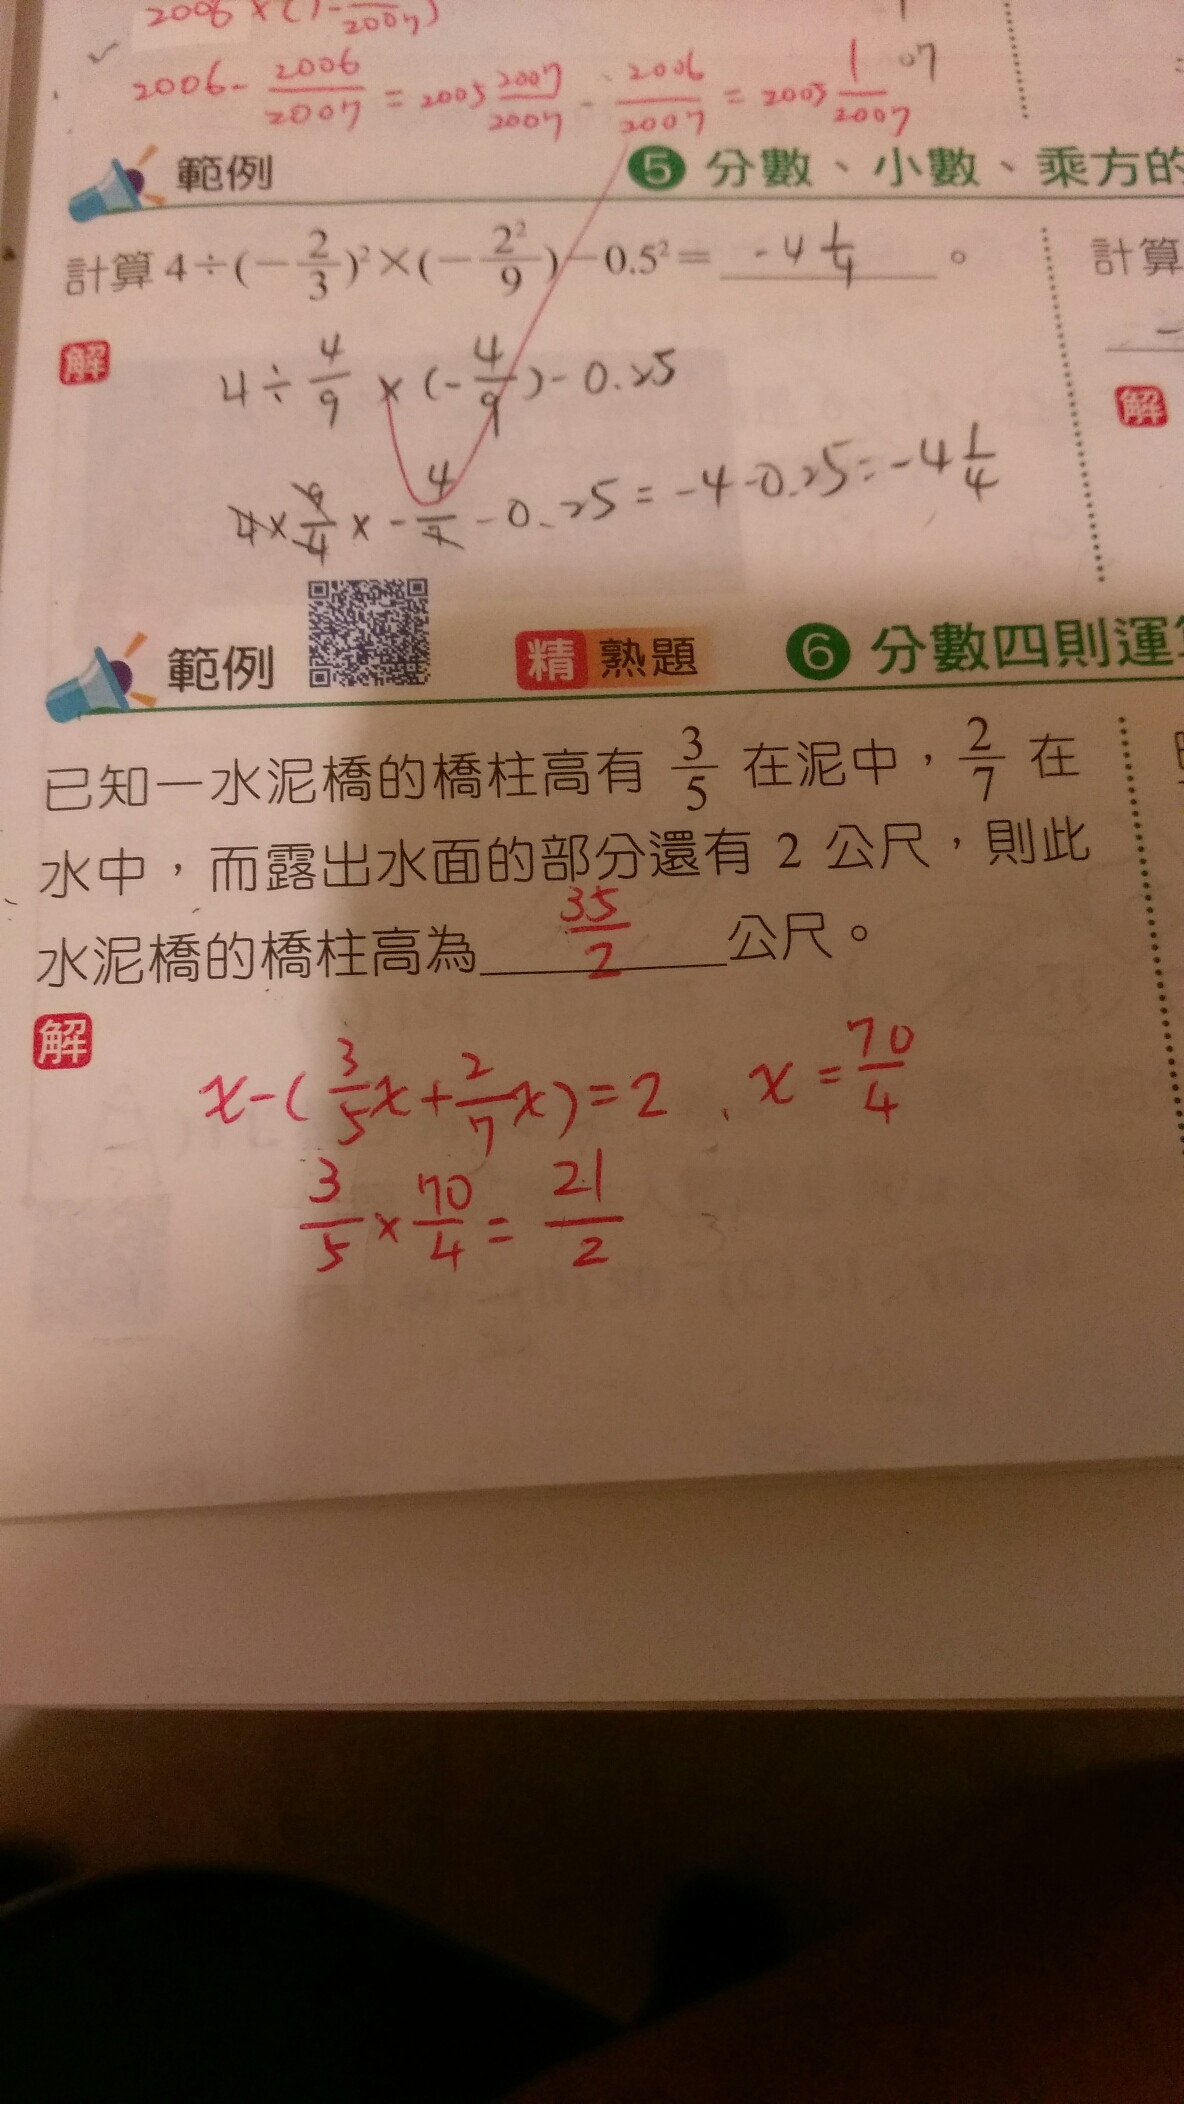 2006×(1-
2007)
2006-2006/2007=2005 2007/2007-2006/2007=2005 1/2007
範例
5 分數、小數、乘方的
計算 4÷(-2/3)²×(-2²/9)-0.5²= -4 1/4 。
計算
解
4÷4/9×(-4/9)-0.25
解
4×9/4×-4/9-0.25=-4-0.25=-4 1/4
範例
精 熟題
6 分數四則運算
已知一水泥橋的橋柱高有 3/5 在泥中,2/7 在
水中,而露出水面的部分還有 2 公尺,則此
水泥橋的橋柱高為 35/2 公尺。
解
x-(3/5x+2/7x)=2、x=70/4
3/5×70/4=21/2